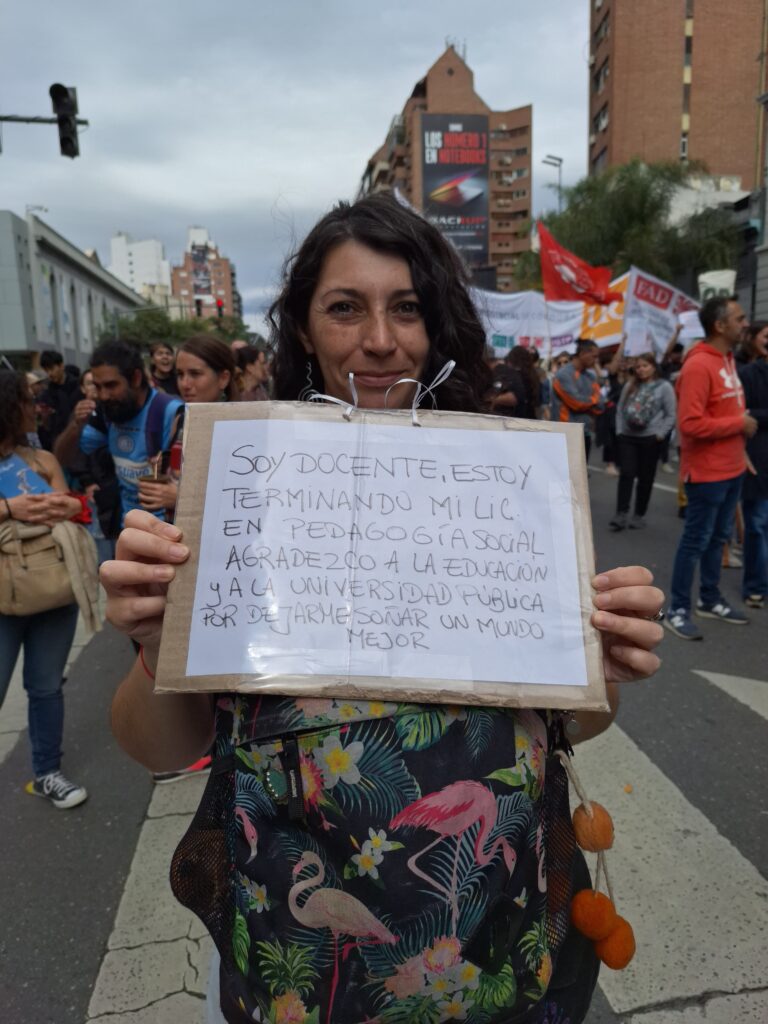 LOS NÚMERO 1
EN NOTEBOOKS
FAD
SOY DOCENTE, ESTOY
TERMINANDO MI LIC.
EN PEDAGOGÍA SOCIAL
AGRADEZCO A LA EDUCACIÓN
Y A LA UNIVERSIDAD PÚBLICA
POR DEJARME SOÑAR UN MUNDO
MEJOR